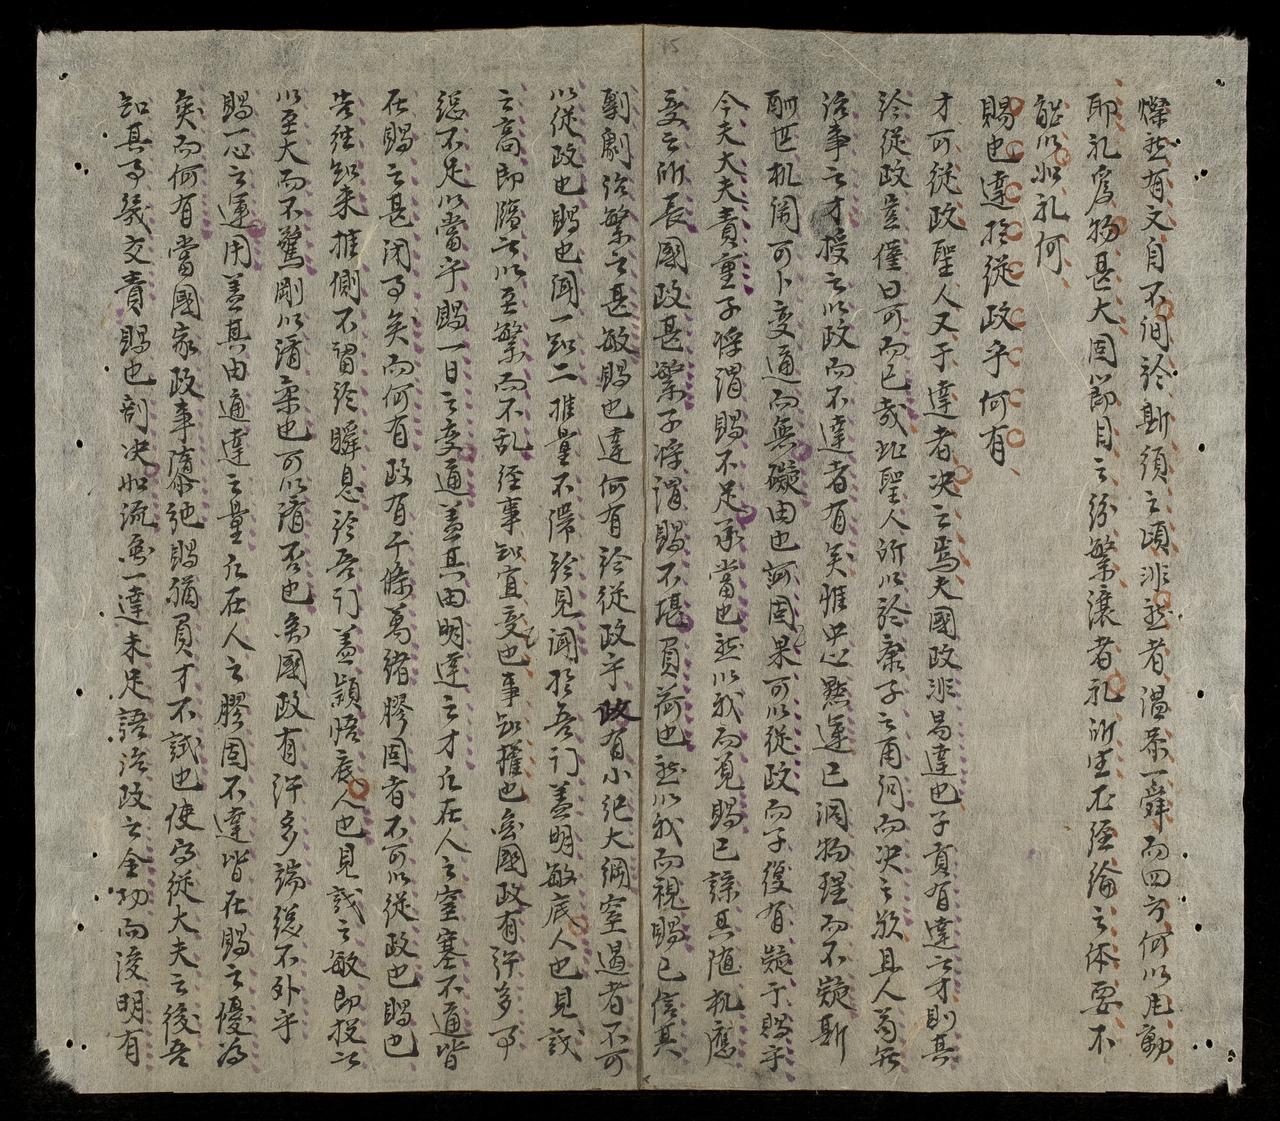 燦然有文自不间於斯須之頃非然者温恭一舜而四方何以屈動
即礼寓物甚大固節目之紛繁讓者礼所生在经綸之体要不
能以如礼何
賜也達於従政乎何有
才可従政聖人又于達者决之焉夫國政非易達也子貢有達之才則其
於従政豈僅曰可而已哉此聖人所以於康子之甫问而决之欤且人苟無
治事之才授之以政而不達者有矣惟忠心黙運已洞物理而不疑斯
酬世机関可卜变通而無礙由也訶固果可以従政而子復有疑于賜乎
今夫大夫責重子将謂賜不足承當也然以我而覓賜已諒其随机應
变之所長國政甚繁子将謂賜不堪負荷也然以我而視賜已信其
剸劇治繁之甚敏賜也達何有於従政乎政有小纪大綱窒過者不可
以従政也賜也闻一知二推量不滞於見闻於吾门盖明敏底人也見識
之高即隨之以至繁而不乱经事知宜变也事知權也矣國政有許多事
總不足以當乎賜一日之变通盖其由明達之才在人之窒塞不通皆
在賜之甚闭事矣而何有政有千條萬緒膠固者不可以従政也賜也
告徃知来推側不留於瞬息於吾门盖颖悟底人也見識之敏即投之
以至大而不驚剛以済柔也可以済否也矣國政有許多端總不外乎
賜一心之運用盖其由通達之量在人之膠固不達皆在賜之優為
矣而何有當國家政事隳弛賜猶負才不試也使寄従大夫之後吾
知其事幾交責賜也剖决如流而一達未足語治政之全功而浚明有